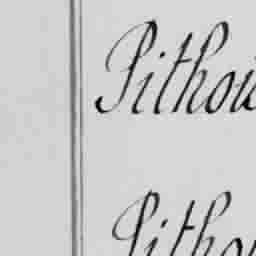 Pithou
Pithou